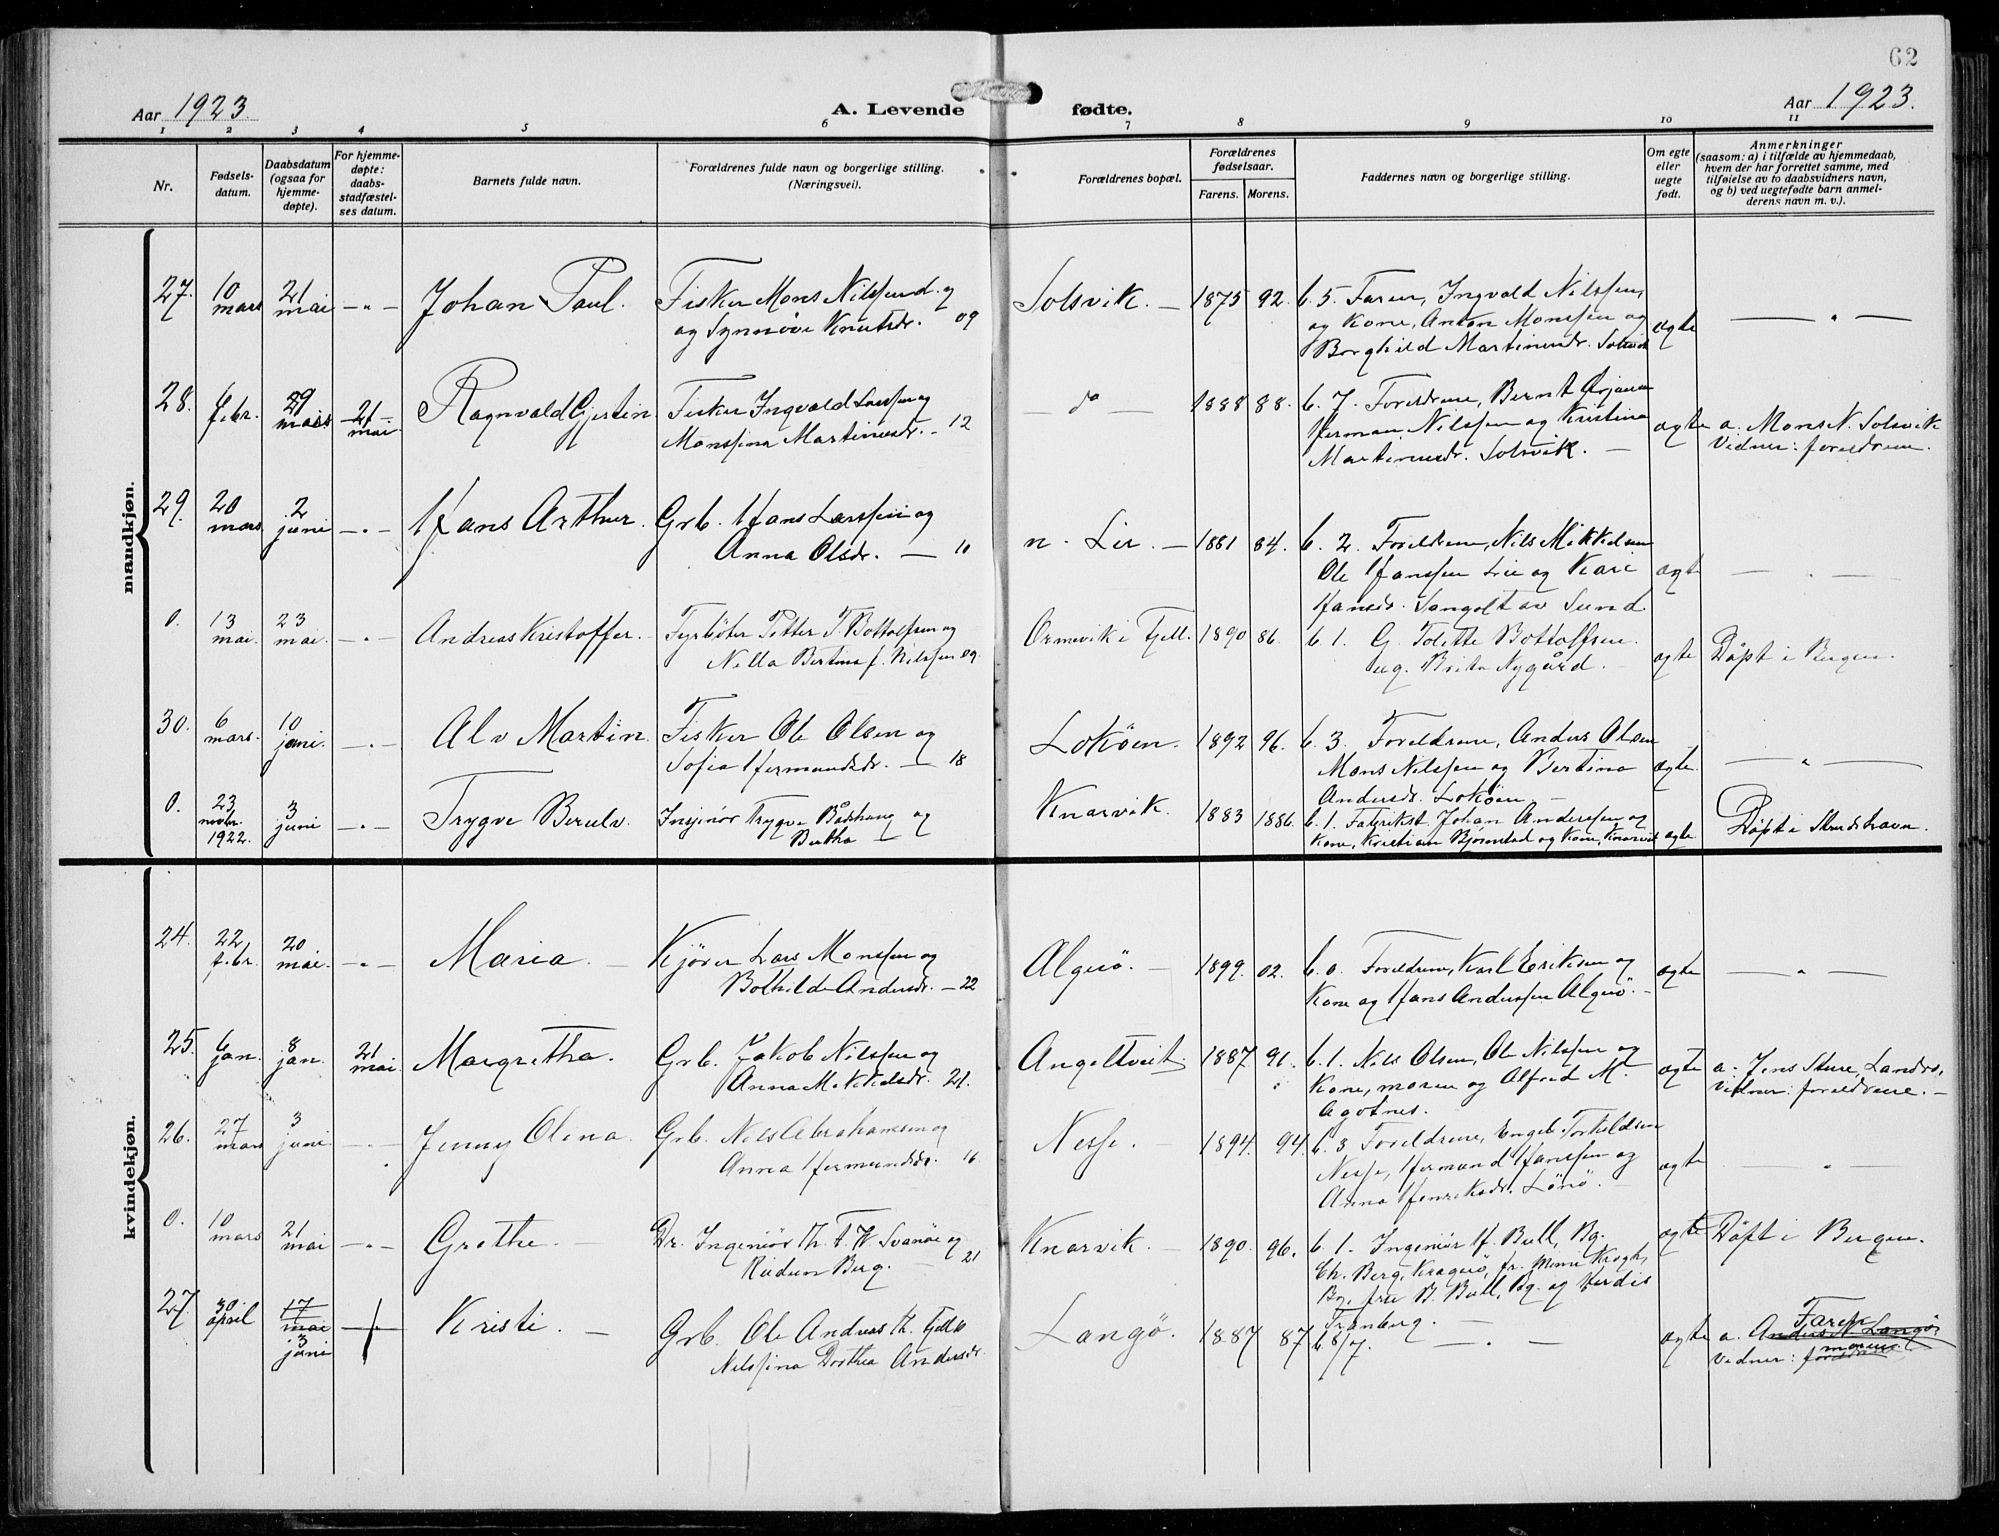 62
Aar 1923. A. Levende fødte. Aar 1923.
1 2 3 4 5 6 7 8 9 10 11
Nr.
Fødsels-
datum.
Daabsdatum
(ogsaa for
hjemme-
døpte).
For hjemme-
døpte:
daabs-
stadfæstel-
ses datum.
Barnets fulde navn.
Forældrenes fulde navn og borgerlige stilling.
(Næringsvei).
Forældrenes bopæl.
Forældrenes
fødselsaar.
Farens. Morens.
Faddernes navn og borgerlige stilling.
Om egte
eller
uegte
født.
Anmerkninger
(saasom: a) i tilfælde av hjemmedaab,
hvem der har forrettet samme, med
tilføielse av to daabsvidners navn,
og b) ved uegtefødte barn anmel-
derens navn m. v.).
mandkjøn.
27. 10 mars 21 mai — " — Johan Paul. Fisker Mons Nilssen og
og Synnöve Knutsdr. 09
Solsvik. — 1875 92. b. 5. Faren, Ingvald Nilssen,
og Kone, Anton Monssen og
Borghild Martinusdr. Solsvik
egte — " —
28. 6 febr. 29 mars 21 mai Ragnvald Gjertin Fisker Ingvald Larssen og
Monsina Martinusdr. — 12
— do — 1888 88. b. 7. Foreldrene, Bernt Ørjansen
Herman Nilssen og Kristina
Martinusdr. Solsvik. —
egte a. Mons N. Solsvik
Vidner: foreldrene.
29. 20 mars 2 juni — " — Hans Arthur. Grb. Hans Larssen og
Anna Olsdr. — 10
n. Lie. — 1881 84. b. 2. Foreldrene, Nils Mikkelsen
Ole Hanssen Lie og Kari
Hansdr. Sangolt av Sund.
egte — " —
0. 13 mai. 23 mai. — " — Andreas Kristoffer. Fyrböter Petter T. Bottolfsen og
Nella Bertina f. Nilssen 09.
Ormevik i Fjell. 1890 86. b. 1. G. Tolette Bottolfsen.
ug. Brita Nygård. —
egte Döpt i Bergen.
30. 6 mars. 10 juni. — " — Alv Martin. Fisker Ole Olsen og
Sofia Hermundsdr. — 18
Loköen. 1892 96. b. 3. Foreldrene, Anders Olsen
Mons Nilssen og Bertina
Andersdr. Loköen —
egte. — " —
0. 23 novbr. 1922. 3 juni — " — Trygve Berulv. Ingeniör Trygve og
Bertha —
Knarvik. 1883 1886. b. 1. Fabrikst. Johan Anderssen og
Kone, Kristian Björnstad og Kone, Knarvik
egte Döpt i Strudshavn.
kvindekjøn.
24. 22 febr. 20 mai. — " — Maria. — Kjörer Lars Monssen og
Bothilde Andersdr. — 22
Algrö. — 1899. 02. b. 0. Foreldrene, Karl Eriksen og
Kone og Hans Anderssen Algrö. —
egte — " —
25. 6 jan. 8 jan. 21 mai Margretha. Grb. Jakob Nilssen og
Anna Mikkelsdr. 21.
Angeltveit. 1887 91. b. 1. Nils Olsen, Ole Nilssen og
Kone, moren og Alfred M.
Agotnes.
egte a. Jens Sture, Landro,
Vidner: foreldrene. —
26. 27 mars 3 juni — " — Jenny Olina. Grb. Nils Abrahamsen og
Anna Hermundsdr. 16.
Nesse. — 1894. 94. b. 3 Foreldrene, Engeb. Torkildsen
Nesse, Hermund Hanssen og
Anna Henriksdr. Lönö. —
egte — " —
0. 10 mars 21 mai — " — Grethe. Dr. Ingeniör Th. F. W. Svanöe og
Berg. — 21
Knarvik. — 1890. 96. b. 1. Ingeniör H. Bull, Bg.
Ch. Berg, Kragerö, fr. Mimi Krogh,
Bg. fru B. Bull, Bg. og Verdis
Tranberg. —
egte Döpt i Bergen.
27. 30 april 17 mai 3 juni Kristi. — Grb. Ole Andreas Th. Fjell
Nilssina Dorthea Andersdr.
Langö. 1887 87 b 8/7. — " —
egte a. Anders N. Langö. Faren
Vidner: foreldrene moren